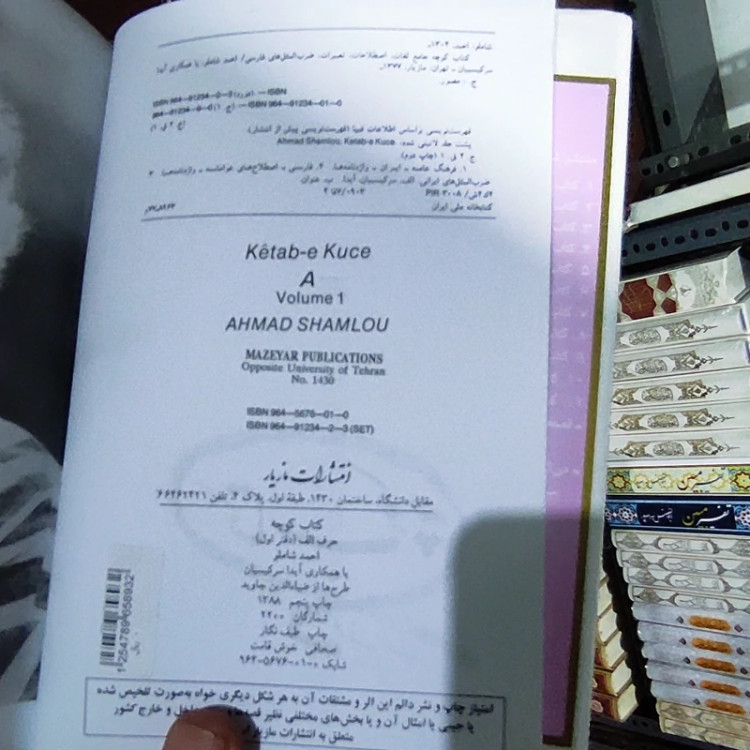 شاملو، احمد، ۱۳۰۴م
کتاب کوچه جامع لغات، اصطلاحات، تعبیرات، ضرب‌المثل‌های فارسی/ احمد شاملو، با همکاری آیدا
سرکیسیان ـ تهران، مازیار، ۱۳۷۷.
ج : مصور.
— ISBN
— ISBN 964—91234—01—0
فهرست‌نویسی براساس اطلاعات فیپا (فهرست‌نویسی پیش از انتشار).
پشت جلد لاتینی شده: Ahmad Shamlou, Ketab-e Kuce
ج ۲ ق ۱ (چاپ دوم).
۱. فرهنگ عامه ـ ایران ـ واژه‌نامه‌ها. ۲. فارسی ـ اصطلاح‌های عوامانه ـ واژه‌نامه‌ها ۳
ضرب‌المثل‌های ایرانی. الف. سرکیسیان، آیدا. ب. عنوان
PIR ۳۰۰۸
کتابخانه ملی ایران
Kêtab-e Kuce
A
Volume 1
AHMAD SHAMLOU
MAZEYAR PUBLICATIONS
Opposite University of Tehran
No. 1430
ISBN 964—5676—01—0
ISBN 964—91234—2—3 (SET)
انتشارات مازیار
مقابل دانشگاه، ساختمان ۱۴۳۰، طبقه اول، پلاک ۴، تلفن ۶۶۴۶۲۴۲۱
کتاب کوچه
حرف الف (دفتر اول)
احمد شاملو
با همکاری آیدا سرکیسیان
طرح‌ها از ضیاءالدین جاوید
چاپ پنجم ۱۳۸۸
شمارگان ۲۲۰۰
چاپ طیف نگار
صحافی خوش قامت
شابک ۰-۰۱-۵۶۷۶-۹۶۴
1254789658932
ریال
امتیاز چاپ و نشر دائم این اثر و مشتقات آن به هر شکل دیگری خواه به‌صورت تلخیص شده
یا جیبی یا امثال آن و یا بخش‌های مختلفی نظیر داخل و خارج کشور
متعلق به انتشارات مازیار
تفسیر مبین
تفسیر مبین